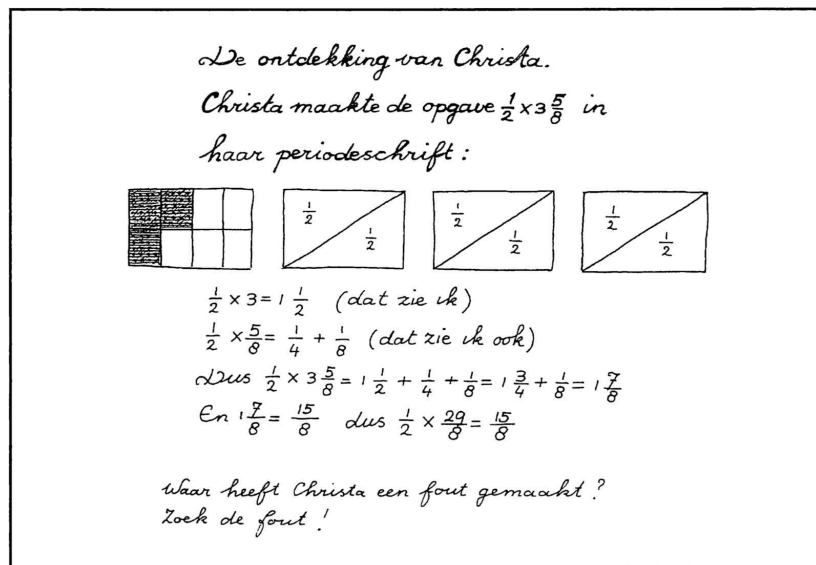 De ontdekking van Christa.
Christa maakte de opgave 1/2 x 3 5/8 in
haar periodeschrift:
1/2 1/2 1/2 1/2 1/2 1/2
1/2 x 3 = 1 1/2 (dat zie ik)
1/2 x 5/8 = 1/4 + 1/8 (dat zie ik ook)
Dus 1/2 x 3 5/8 = 1 1/2 + 1/4 + 1/8 = 1 3/4 + 1/8 = 1 7/8
En 1 7/8 = 15/8 dus 1/2 x 29/8 = 15/8
Waar heeft Christa een fout gemaakt?
Zoek de fout!